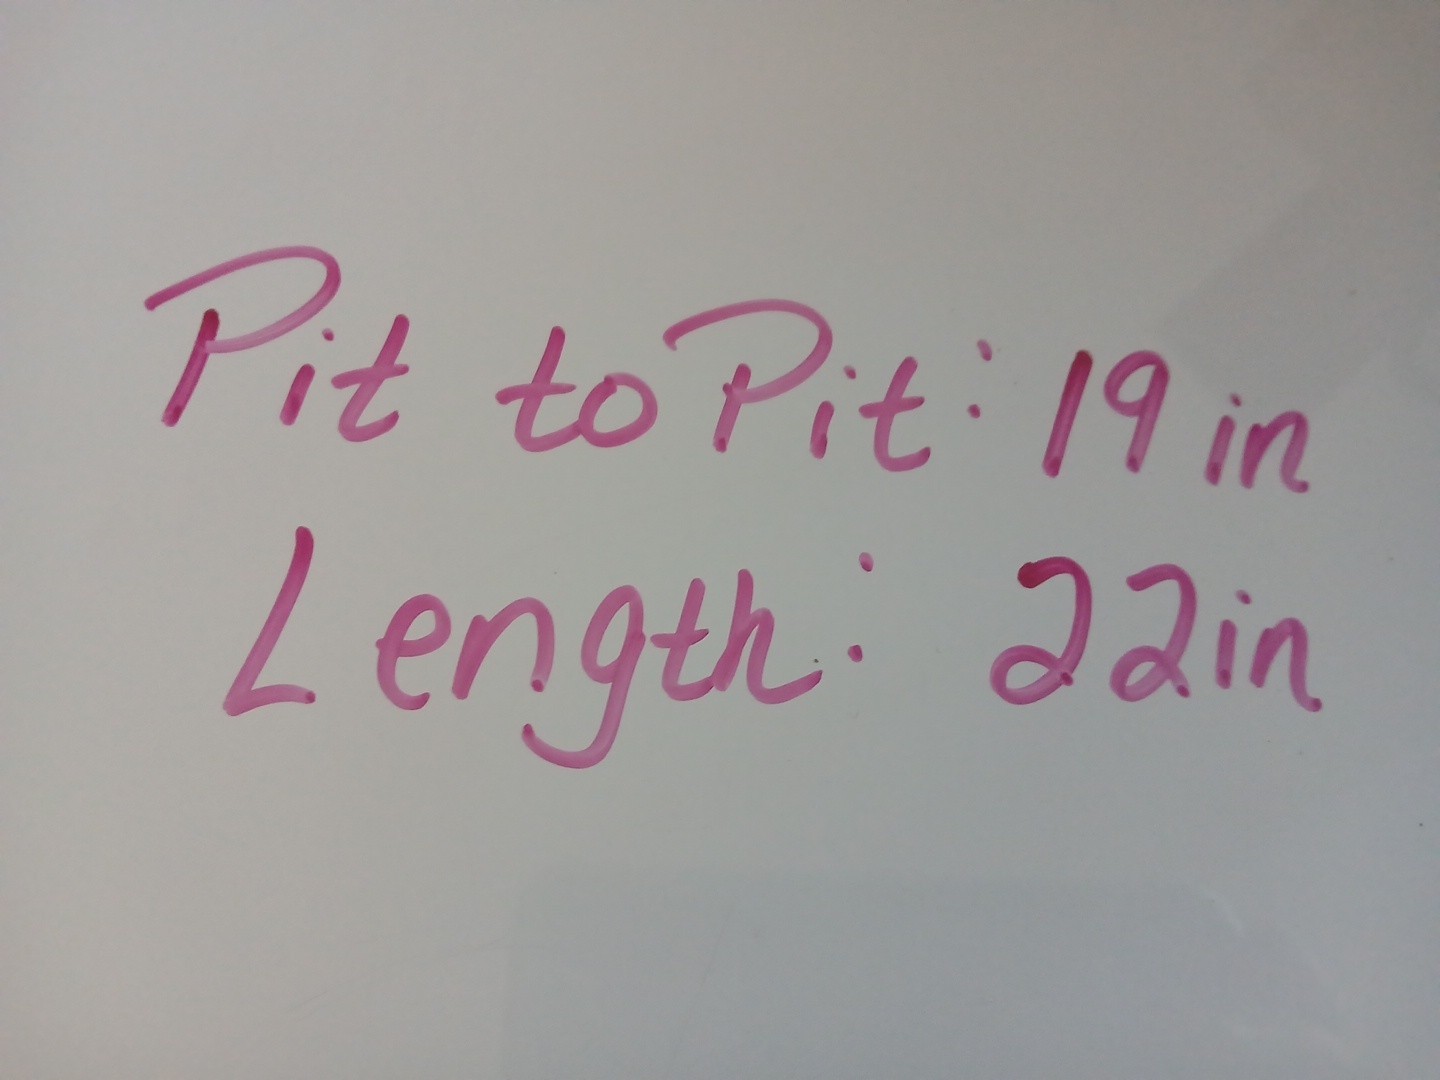 Pit to Pit: 19 in
Length: 22in